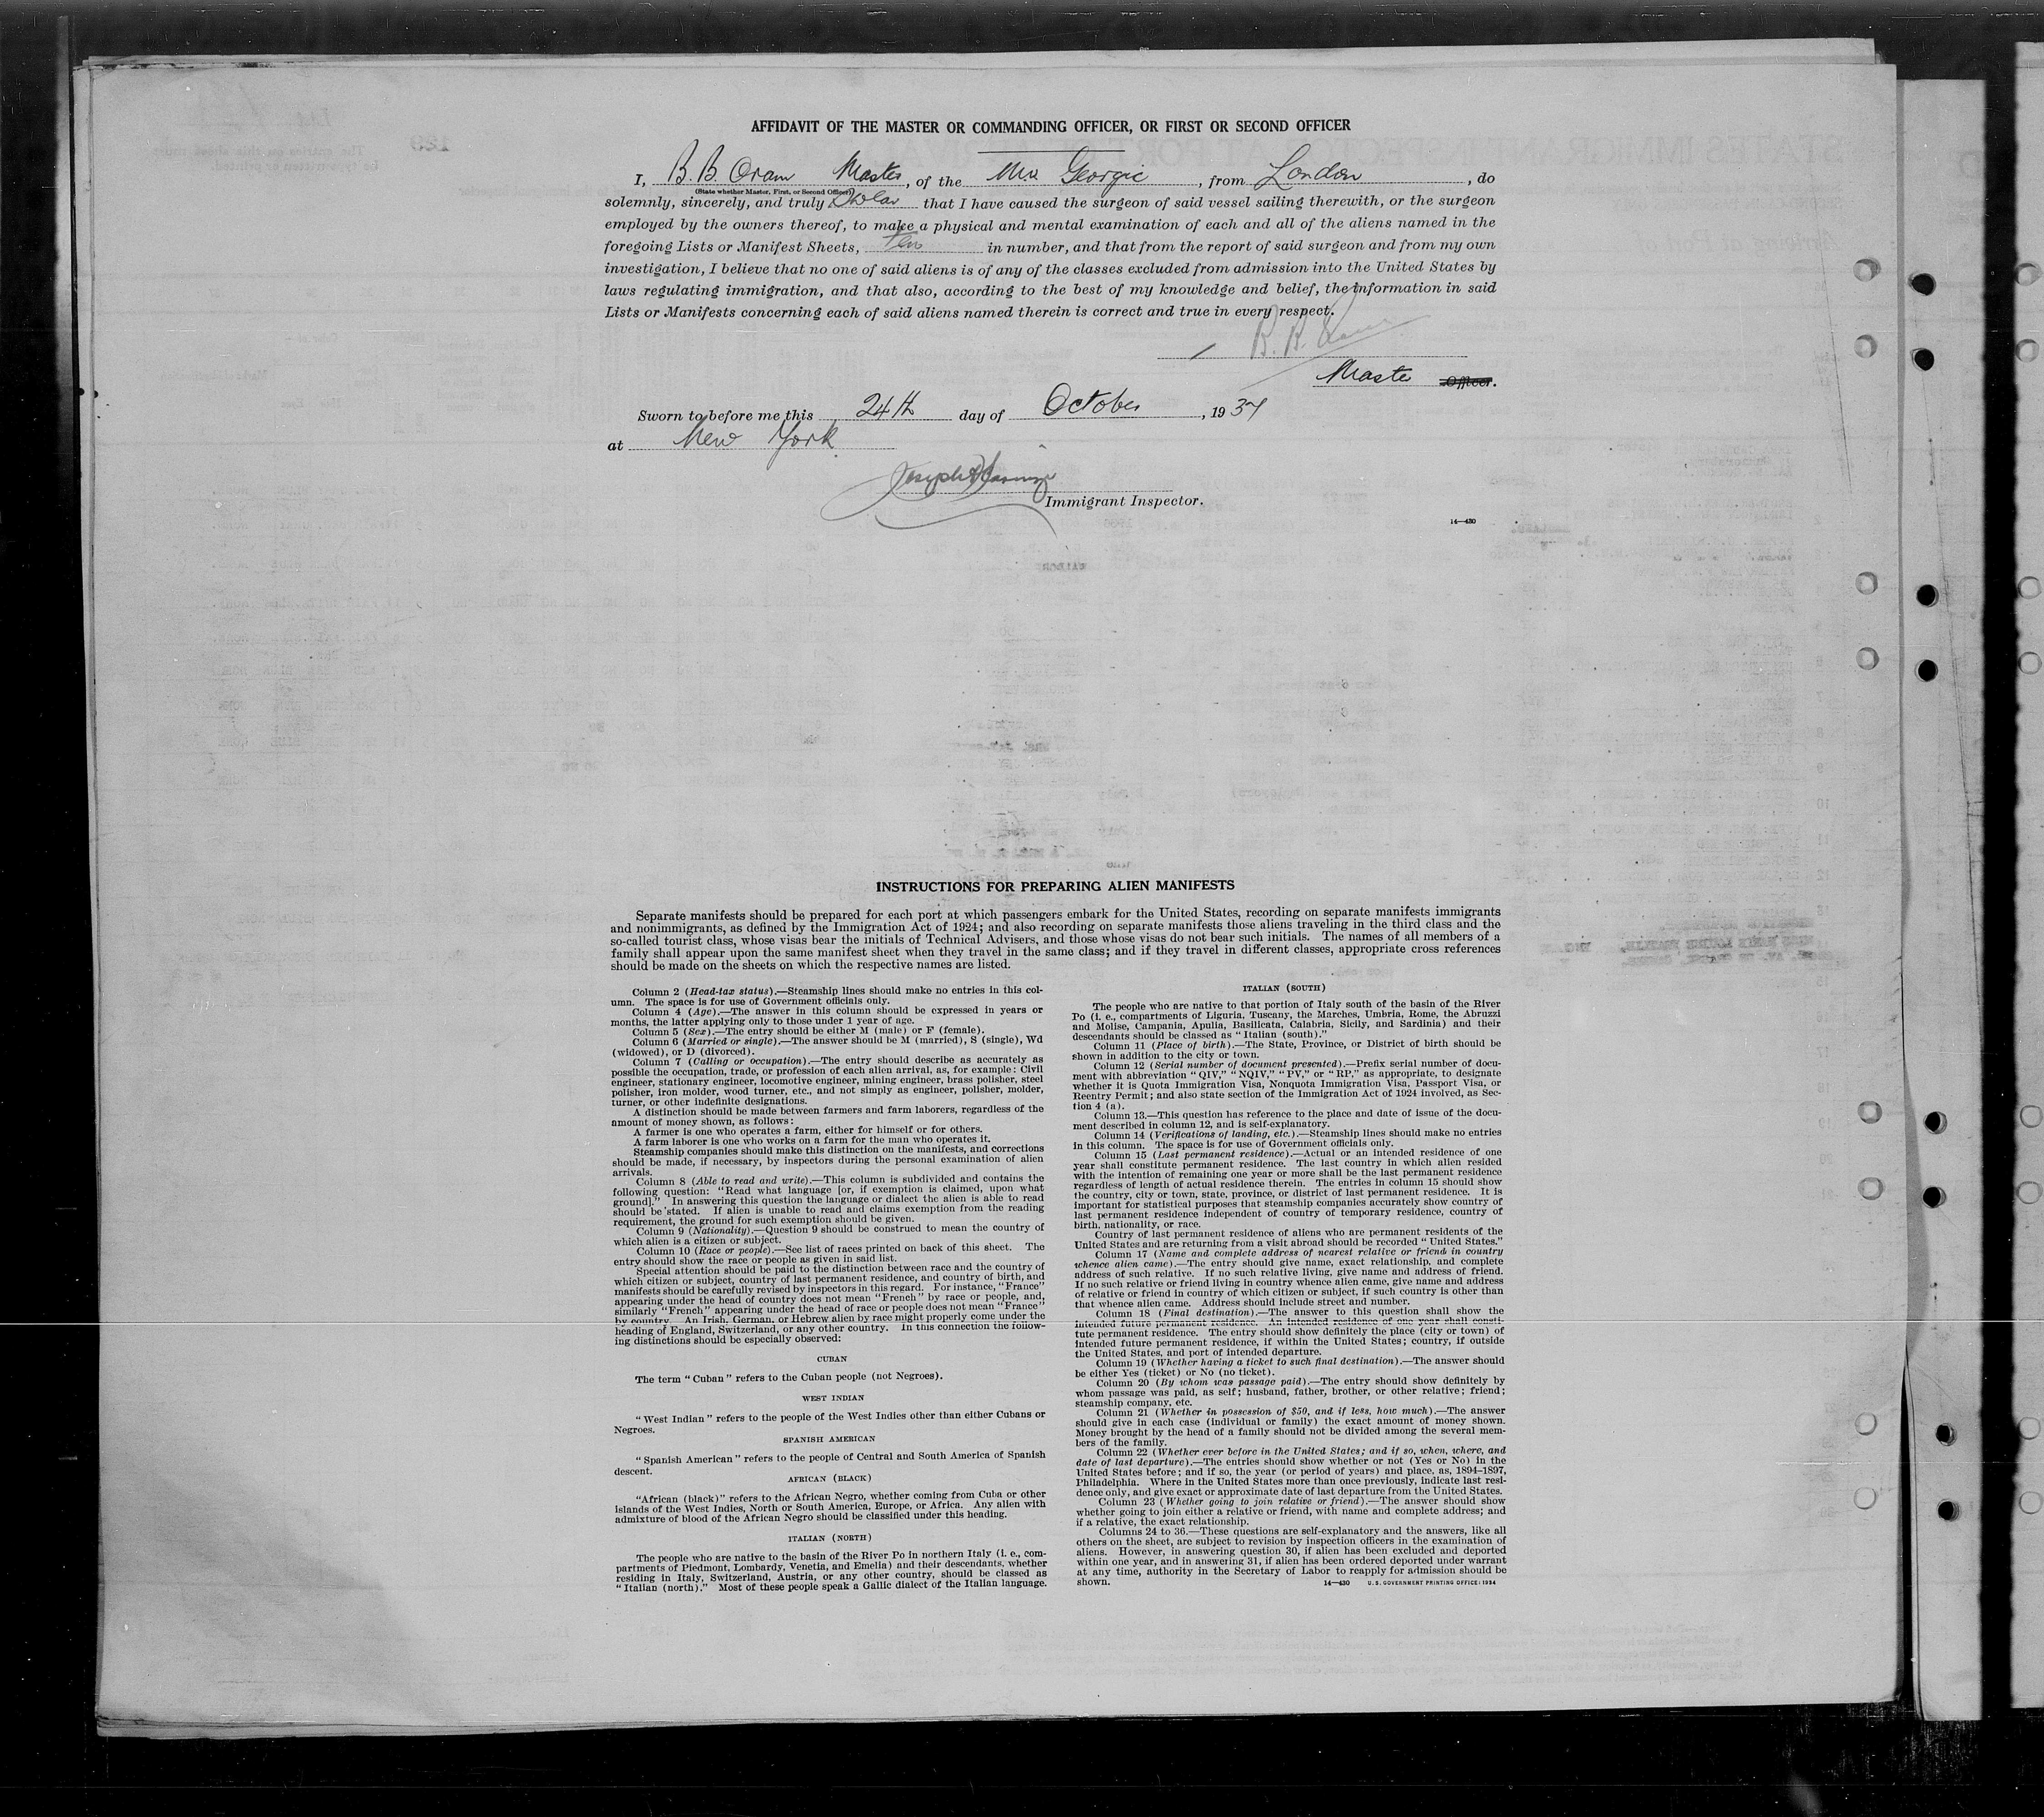 AFFIDAVIT OF THE MASTER OR COMMANDING OFFICER, OR FIRST OR SECOND OFFICER
I, B. B. Oram Master, of the M.V. Georgic, from London, do
(State whether Master, First, or Second Officer)
solemnly, sincerely, and truly that I have caused the surgeon of said vessel sailing therewith, or the surgeon
employed by the owners thereof, to make a physical and mental examination of each and all of the aliens named in the
foregoing Lists or Manifest Sheets, in number, and that from the report of said surgeon and from my own
investigation, I believe that no one of said aliens is of any of the classes excluded from admission into the United States by
laws regulating immigration, and that also, according to the best of my knowledge and belief, the information in said
Lists or Manifests concerning each of said aliens named therein is correct and true in every respect.
B. B. Oram
Master Officer.
Sworn to before me this 24th day of October, 1937
at New York
Joseph
Immigrant Inspector.
14—430
INSTRUCTIONS FOR PREPARING ALIEN MANIFESTS
Separate manifests should be prepared for each port at which passengers embark for the United States, recording on separate manifests immigrants
and nonimmigrants, as defined by the Immigration Act of 1924; and also recording on separate manifests those aliens traveling in the third class and the
so-called tourist class, whose visas bear the initials of Technical Advisers, and those whose visas do not bear such initials. The names of all members of a
family shall appear upon the same manifest sheet when they travel in the same class; and if they travel in different classes, appropriate cross references
should be made on the sheets on which the respective names are listed.
Column 2 (Head-tax status).—Steamship lines should make no entries in this col-
umn. The space is for use of Government officials only.
Column 4 (Age).—The answer in this column should be expressed in years or
months, the latter applying only to those under 1 year of age.
Column 5 (Sex).—The entry should be either M (male) or F (female).
Column 6 (Married or single).—The answer should be M (married), S (single), Wd
(widowed), or D (divorced).
Column 7 (Calling or occupation).—The entry should describe as accurately as
possible the occupation, trade, or profession of each alien arrival, as, for example: Civil
engineer, stationary engineer, locomotive engineer, mining engineer, brass polisher, steel
polisher, iron molder, wood turner, etc., and not simply as engineer, polisher, molder,
turner, or other indefinite designations.
A distinction should be made between farmers and farm laborers, regardless of the
amount of money shown, as follows:
A farmer is one who operates a farm, either for himself or for others.
A farm laborer is one who works on a farm for the man who operates it.
Steamship companies should make this distinction on the manifests, and corrections
should be made, if necessary, by inspectors during the personal examination of alien
arrivals.
Column 8 (Able to read and write).—This column is subdivided and contains the
following question: "Read what language [or, if exemption is claimed, upon what
ground]." In answering this question the language or dialect the alien is able to read
should be stated. If alien is unable to read and claims exemption from the reading
requirement, the ground for such exemption should be given.
Column 9 (Nationality).—Question 9 should be construed to mean the country of
which alien is a citizen or subject.
Column 10 (Race or people).—See list of races printed on back of this sheet. The
entry should show the race or people as given in said list.
Special attention should be paid to the distinction between race and the country of
which citizen or subject, country of last permanent residence, and country of birth, and
manifests should be carefully revised by inspectors in this regard. For instance, "France"
appearing under the head of country does not mean "French" by race or people, and,
similarly "French" appearing under the head of race or people does not mean "France"
by country. An Irish, German, or Hebrew alien by race might properly come under the
heading of England, Switzerland, or any other country. In this connection the follow-
ing distinctions should be especially observed:
CUBAN
The term "Cuban" refers to the Cuban people (not Negroes).
WEST INDIAN
"West Indian" refers to the people of the West Indies other than either Cubans or
Negroes.
SPANISH AMERICAN
"Spanish American" refers to the people of Central and South America of Spanish
descent.
AFRICAN (BLACK)
"African (black)" refers to the African Negro, whether coming from Cuba or other
islands of the West Indies, North or South America, Europe, or Africa. Any alien with
admixture of blood of the African Negro should be classified under this heading.
ITALIAN (NORTH)
The people who are native to the basin of the River Po in northern Italy (i. e., com-
partments of Piedmont, Lombardy, Venetia, and Emelia) and their descendants, whether
residing in Italy, Switzerland, Austria, or any other country, should be classed as
"Italian (north)." Most of these people speak a Gallic dialect of the Italian language.
ITALIAN (SOUTH)
The people who are native to that portion of Italy south of the basin of the River
Po (i. e., compartments of Liguria, Tuscany, the Marches, Umbria, Rome, the Abruzzi
and Molise, Campania, Apulia, Basilicata, Calabria, Sicily, and Sardinia) and their
descendants should be classed as "Italian (south)."
Column 11 (Place of birth).—The State, Province, or District of birth should be
shown in addition to the city or town.
Column 12 (Serial number of document presented).—Prefix serial number of docu-
ment with abbreviation "QIV," "NQIV," "PV," or "RP," as appropriate, to designate
whether it is Quota Immigration Visa, Nonquota Immigration Visa, Passport Visa, or
Reentry Permit; and also state section of the Immigration Act of 1924 involved, as Sec-
tion 4 (a).
Column 13.—This question has reference to the place and date of issue of the docu-
ment described in column 12, and is self-explanatory.
Column 14 (Verifications of landing, etc.).—Steamship lines should make no entries
in this column. The space is for use of Government officials only.
Column 15 (Last permanent residence).—Actual or an intended residence of one
year shall constitute permanent residence. The last country in which alien resided
with the intention of remaining one year or more shall be the last permanent residence
regardless of length of actual residence therein. The entries in column 15 should show
the country, city or town, state, province, or district of last permanent residence. It is
important for statistical purposes that steamship companies accurately show country of
last permanent residence independent of country of temporary residence, country of
birth, nationality, or race.
Country of last permanent residence of aliens who are permanent residents of the
United States and are returning from a visit abroad should be recorded "United States."
Column 17 (Name and complete address of nearest relative or friend in country
whence alien came).—The entry should give name, exact relationship, and complete
address of such relative. If no such relative living, give name and address of friend.
If no such relative or friend living in country whence alien came, give name and address
of relative or friend in country of which citizen or subject, if such country is other than
that whence alien came. Address should include street and number.
Column 18 (Final destination).—The answer to this question shall show the
intended future permanent residence. An intended residence of one year shall consti-
tute permanent residence. The entry should show definitely the place (city or town) of
intended future permanent residence, if within the United States; country, if outside
the United States, and port of intended departure.
Column 19 (Whether having a ticket to such final destination).—The answer should
be either Yes (ticket) or No (no ticket).
Column 20 (By whom was passage paid).—The entry should show definitely by
whom passage was paid, as self; husband, father, brother, or other relative; friend;
steamship company, etc.
Column 21 (Whether in possession of $50, and if less, how much).—The answer
should give in each case (individual or family) the exact amount of money shown.
Money brought by the head of a family should not be divided among the several mem-
bers of the family.
Column 22 (Whether ever before in the United States; and if so, when, where, and
date of last departure).—The entries should show whether or not (Yes or No) in the
United States before; and if so, the year (or period of years) and place, as, 1894–1897,
Philadelphia. Where in the United States more than once previously, indicate last resi-
dence only, and give exact or approximate date of last departure from the United States.
Column 23 (Whether going to join relative or friend).—The answer should show
whether going to join either a relative or friend, with name and complete address; and
if a relative, the exact relationship.
Columns 24 to 36.—These questions are self-explanatory and the answers, like all
others on the sheet, are subject to revision by inspection officers in the examination of
aliens. However, in answering question 30, if alien has been excluded and deported
within one year, and in answering 31, if alien has been ordered deported under warrant
at any time, authority in the Secretary of Labor to reapply for admission should be
shown.
14—430 U. S. GOVERNMENT PRINTING OFFICE: 1934